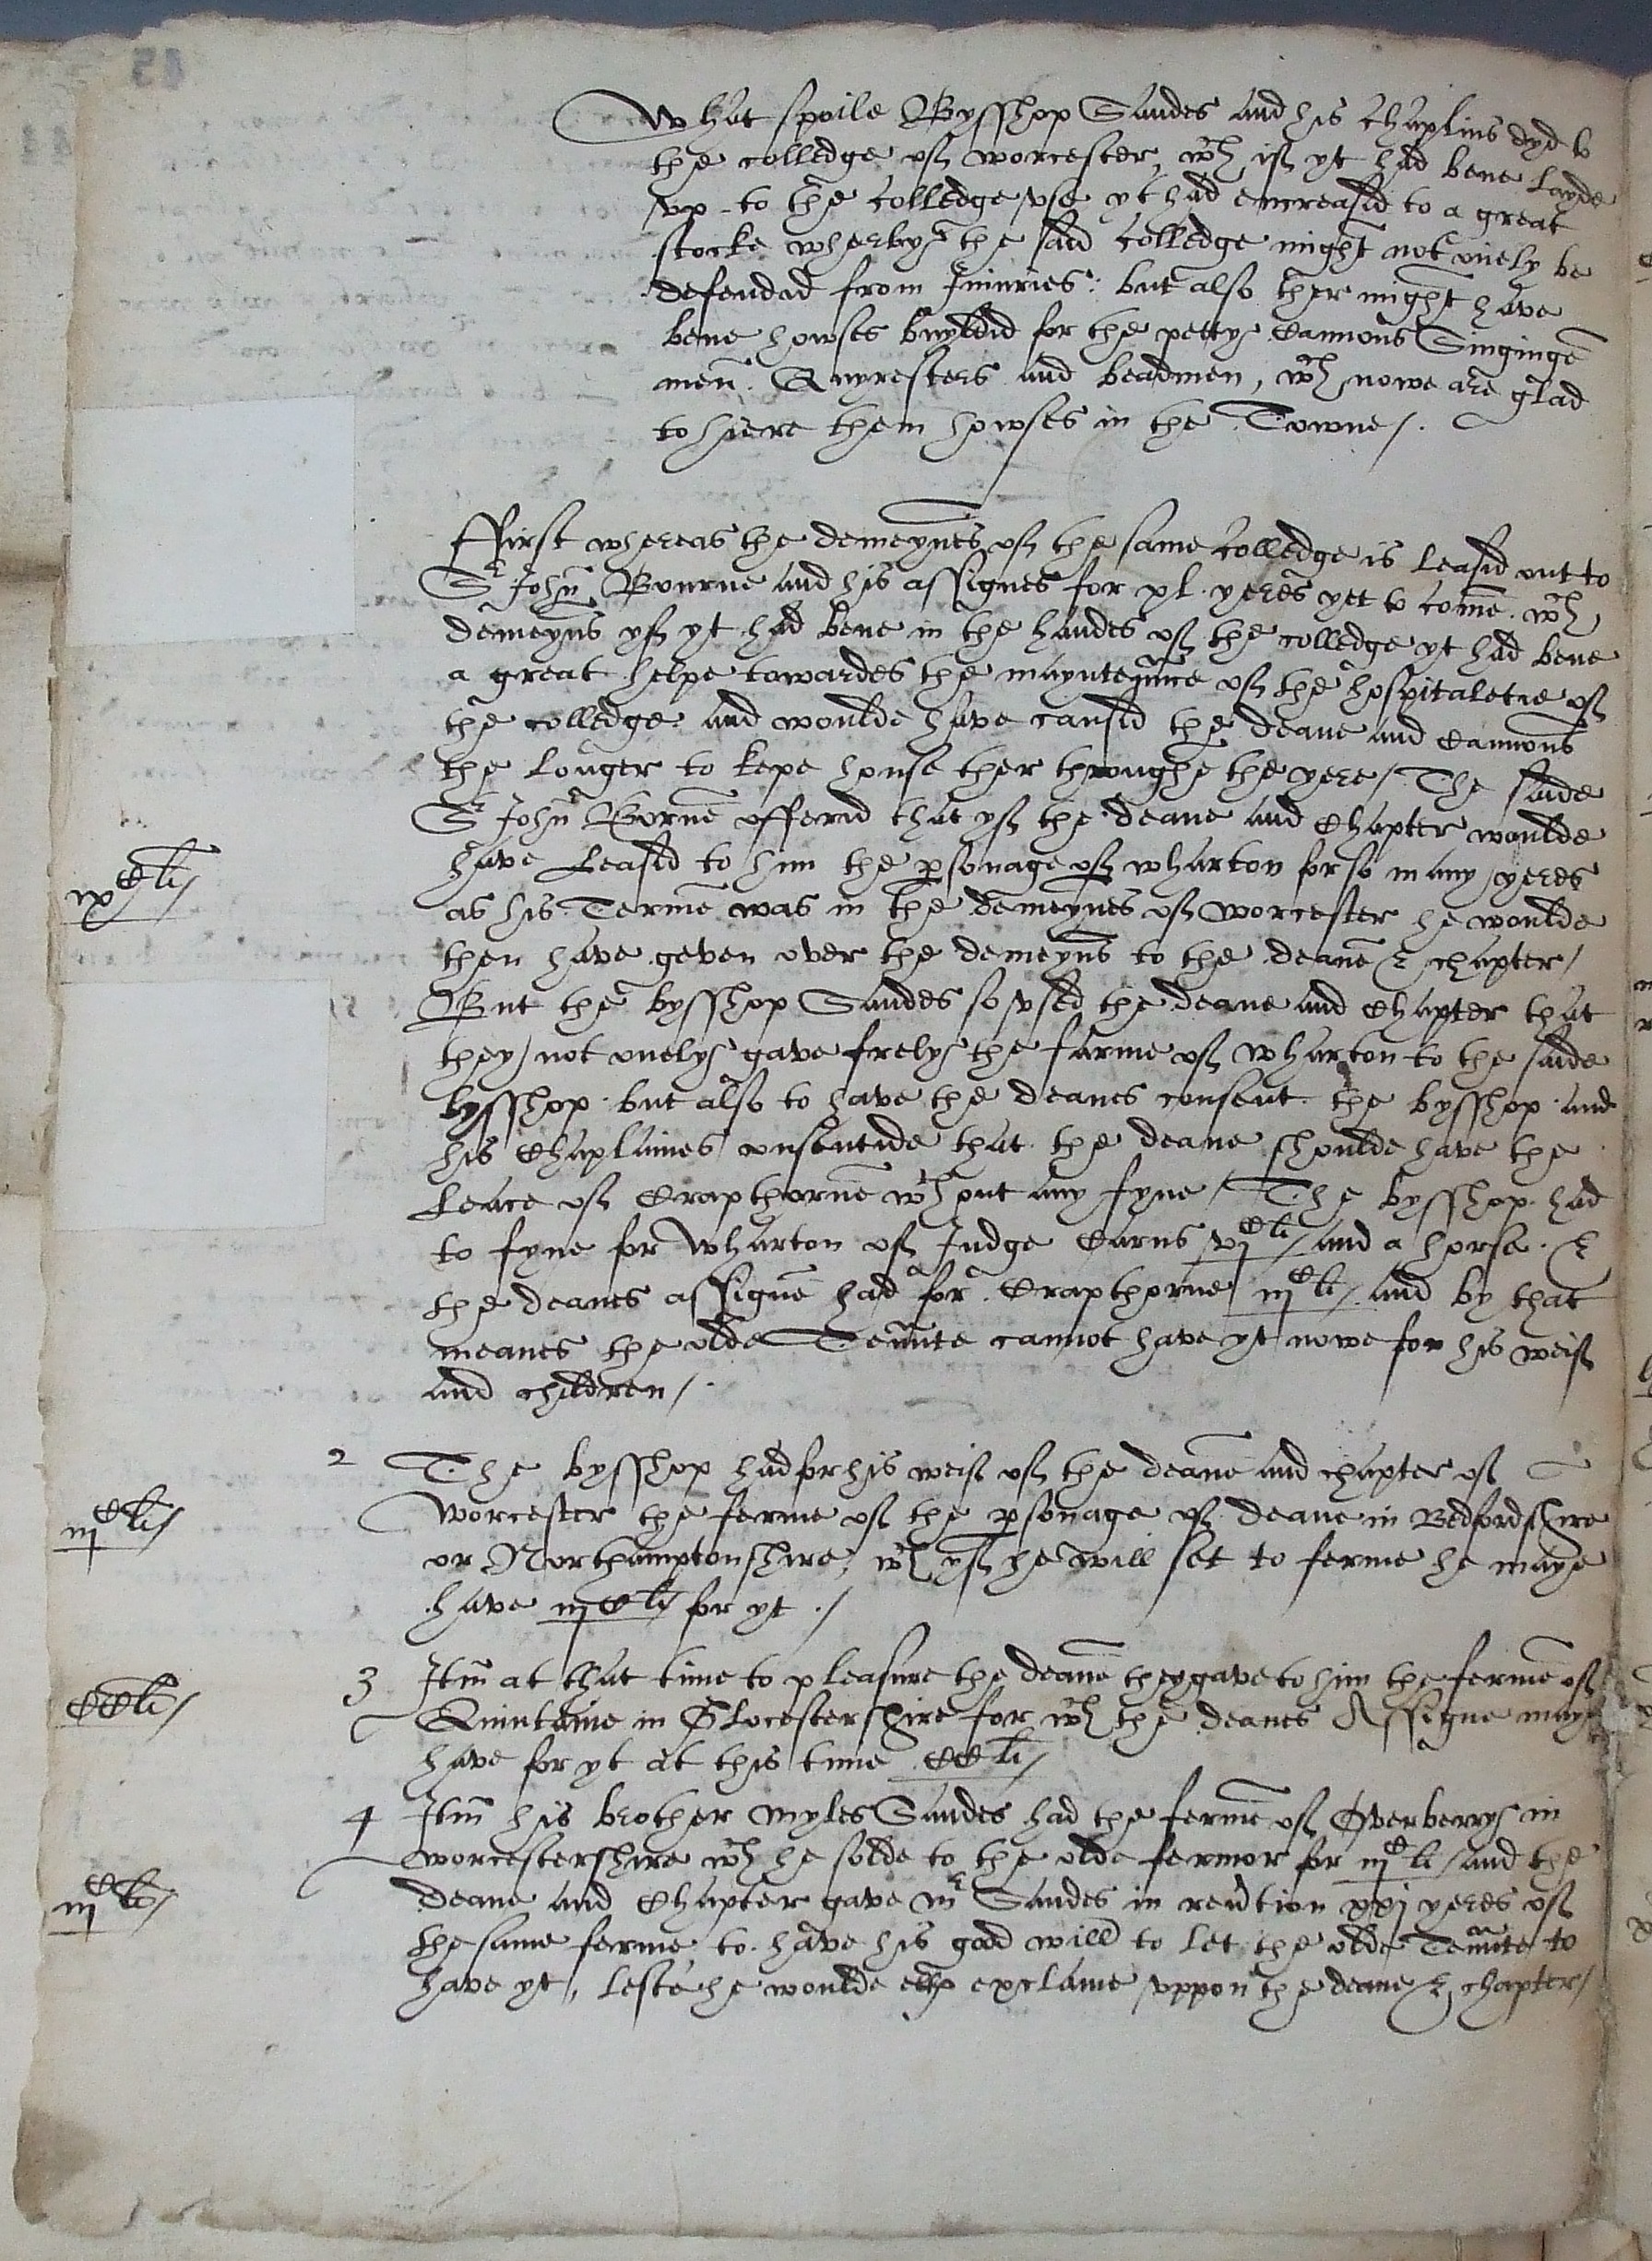 What spoile Bysshop Sandes and his chaplins dyd to
the colledge off worcester, wch iff yt had bene layde
vp to the colledge vse yt had encreasid to a great
stocke wherby the said colledge might not onely be
defendid from Iniuries: but also ther might have
bene howses buyldid for the petty Cannons Singinge
men. Quyresters and beadmen, wch nowe are glad
to hiere them howses in the Towne/.
ffirst whereas the demeynes off the same Colledge is leasid out to
Sr John Bourne and his assignes for xl. yeres yet to come. wch
demeyns yff yt had bene in the handes off the colledge yt had bene
a great helpe towardes the mayntennce off the hospitaletie off
the colledge and woulde have causid the deane and Cannons
the longer to kepe house ther throughe the yere/. The saide
Sr John Borne offerid that yff the deane and Chapter woulde
have leasid to him the psonage off wharton for so many yeres
vj C li/
as his Terme was in the demeynes off worcester he woulde
then have geven over the demeyns to the deane & chapter/
But the bysshop Sandes so vsed the deane and Chapter that
they not onely gave frely the farme off wharton to the saide
bysshop. but also to have the deanes consent. the bysshop and
his Chaplaines consentide that the deane shoulde have the
Leace off Cropthorne wthout any fyne/ The bysshop had
to fyne for Wharton off Judge Carus vj C li/ and a horse. &
the deanes assigne had for Cropthorne iij C li/. and by that
meanes the olde Tennte cannot have yt nowe for his weif
and children/.
2 The bysshop had for his weif off the deane and chapter off
Worcester the ferme off the psonage off deane in Bedfordshire
iij C li/
or Northamptonshire, wch yff he will set to ferme he maye
have iij C li/ for yt ./
3 Itm at that time to pleasure the deane they gave to him the ferme off
CC li/
Quintaine in Glocestershire for wch the deanes Assigne may
have for yt at this time CC li/
4 Itm his brother Myles Sandes had the ferme off Overberry in
worcestershire wch he solde to the olde fermor for iij C li/ and the
iij C li/
deane and Chapter gave mr Sandes in revertion xxj yeres off
the same ferme to have his good will to let the olde Tennte to
have yt, leste he woulde exclame vppon the deane & chapter/